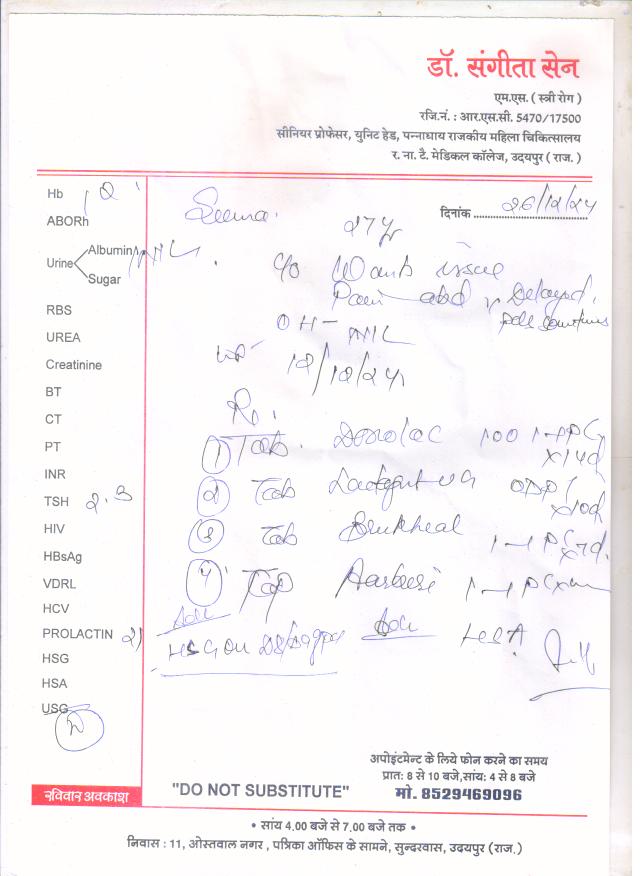 डॉ. संगीता सेन
एम.एस. ( स्त्री रोग )
रजि.नं. : आर.एस.सी. 5470/17500
सीनियर प्रोफेसर, युनिट हेड, पन्नाधाय राजकीय महिला चिकित्सालय
र. ना. टै. मेडिकल कॉलेज, उदयपुर ( राज. )
दिनांक 26/12/24
Seema. 27 yr
Hb 12
ABORh
Urine Albumin NIL
Sugar
C/o Wants issue
Pain abd
OH - NIL
12/12/24
RBS
UREA
Creatinine
BT
CT
PT
INR
TSH 2.3
HIV
HBsAg
VDRL
HCV
PROLACTIN 21
HSG
HSA
USG
N
Rx.
1 Tab. 100 1-1 PC x 14d
2 Tab OD x 10d
3 Tab 1-1 PC x 7d.
4 1-1 PC
Adv
HSG on
Adv HSA
अपोइंटमेन्ट के लिये फोन करने का समय
प्रात: 8 से 10 बजे,सांय: 4 से 8 बजे
मो. 8529469096
रविवार अवकाश
"DO NOT SUBSTITUTE"
• सांय 4.00 बजे से 7.00 बजे तक •
निवास : 11, ओस्तवाल नगर , पत्रिका ऑफिस के सामने, सुन्दरवास, उदयपुर (राज.)